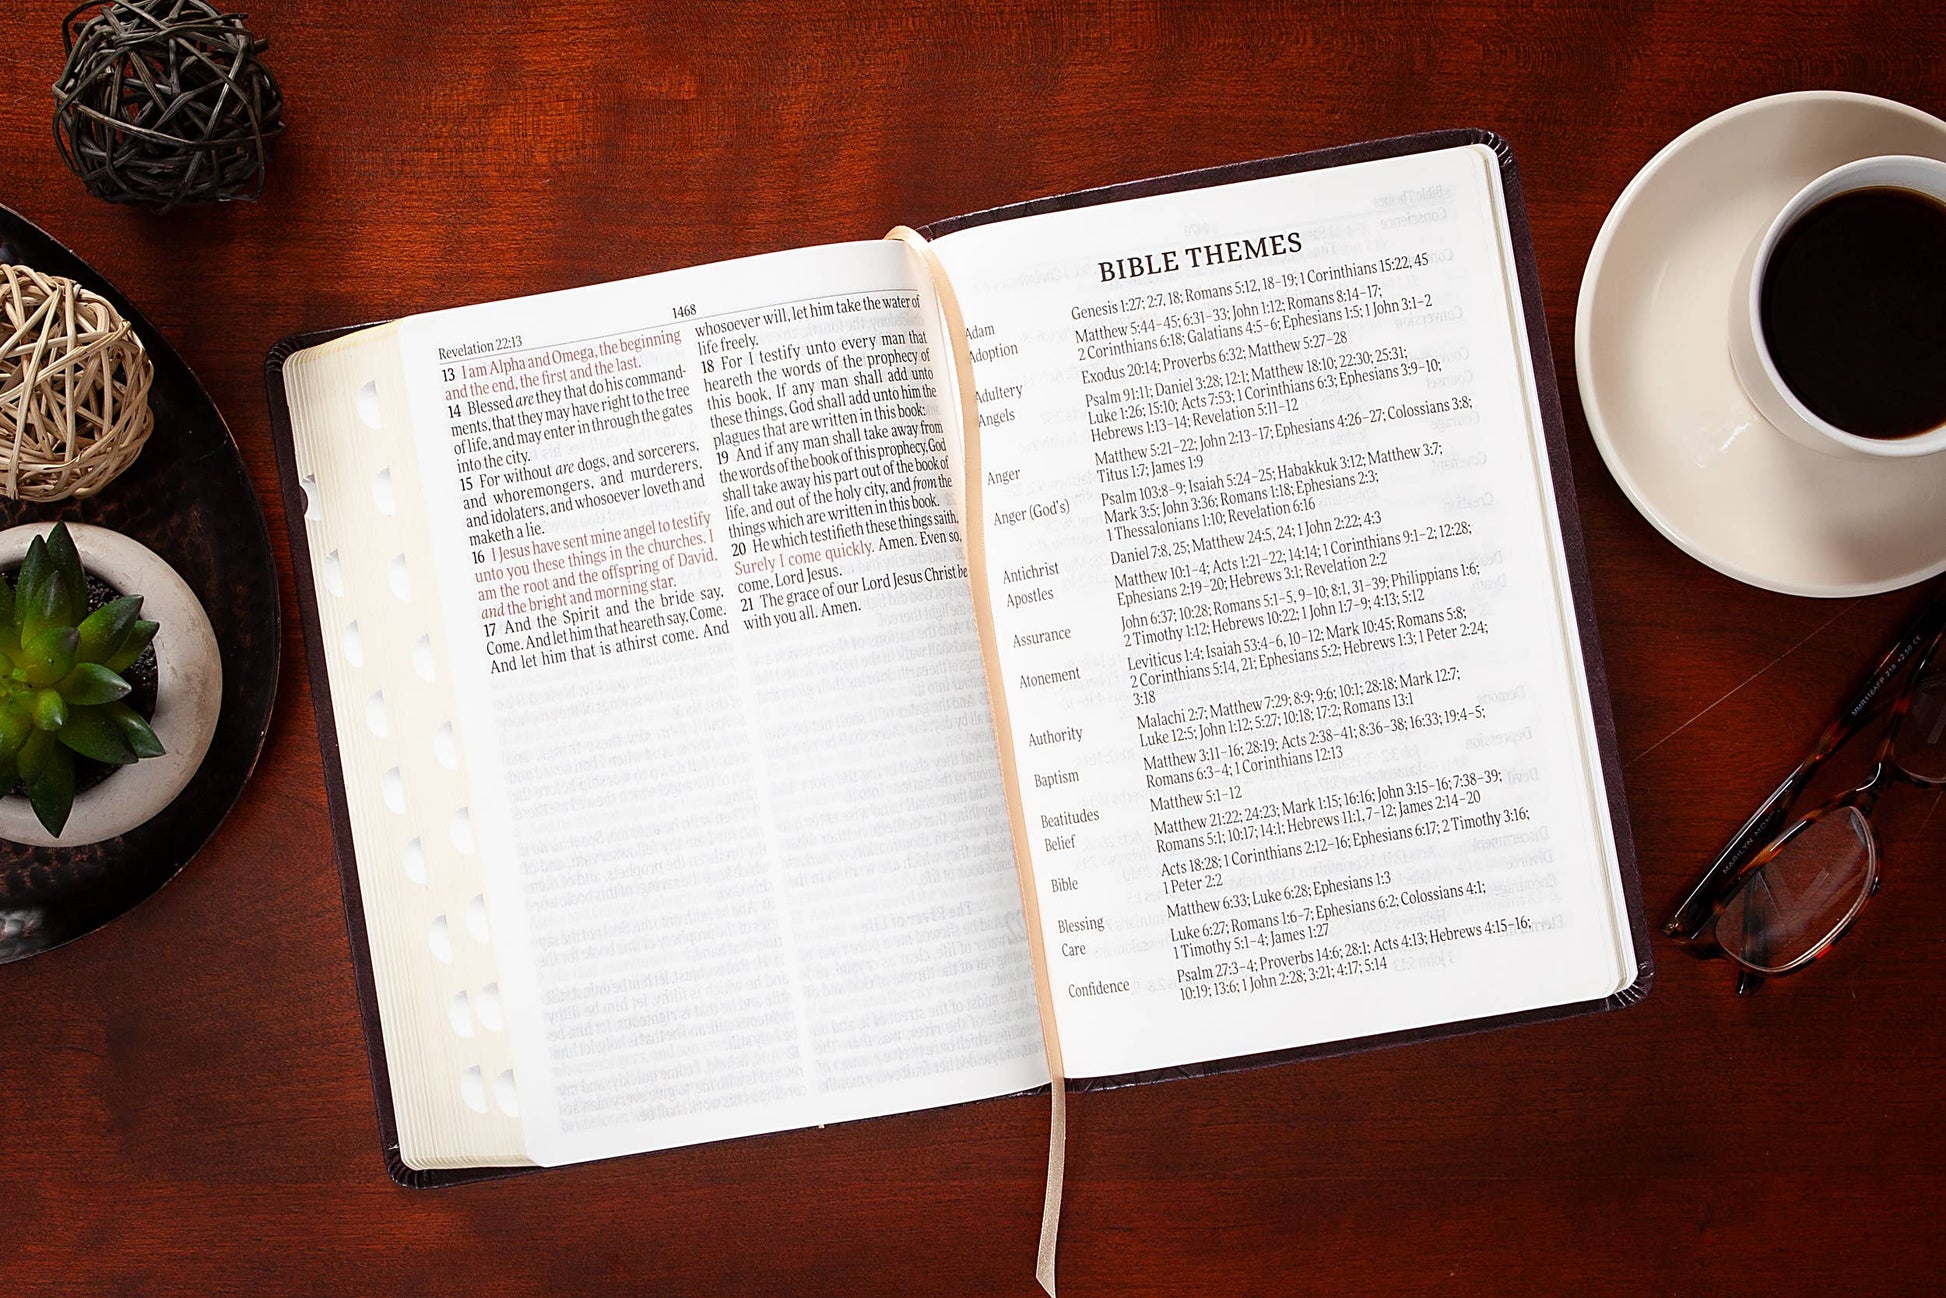 Revelation 22:13
1468
13 I am Alpha and Omega, the beginning
and the end, the first and the last.
14 Blessed are they that do his command-
ments, that they may have right to the tree
of life, and may enter in through the gates
into the city.
15 For without are dogs, and sorcerers,
and whoremongers, and murderers,
and idolaters, and whosoever loveth and
maketh a lie.
16 I Jesus have sent mine angel to testify
unto you these things in the churches. I
am the root and the offspring of David,
and the bright and morning star.
17 And the Spirit and the bride say,
Come. And let him that heareth say, Come.
And let him that is athirst come. And
whosoever will, let him take the water of
life freely.
18 For I testify unto every man that
heareth the words of the prophecy of
this book, If any man shall add unto
these things, God shall add unto him the
plagues that are written in this book:
19 And if any man shall take away from
the words of the book of this prophecy, God
shall take away his part out of the book of
life, and out of the holy city, and from the
things which are written in this book.
20 He which testifieth these things saith,
Surely I come quickly. Amen. Even so,
come, Lord Jesus.
21 The grace of our Lord Jesus Christ be
with you all. Amen.
BIBLE THEMES
Adam Genesis 1:27; 2:7, 18; Romans 5:12, 18–19; 1 Corinthians 15:22, 45
Adoption Matthew 5:44–45; 6:31–33; John 1:12; Romans 8:14–17;
2 Corinthians 6:18; Galatians 4:5–6; Ephesians 1:5; 1 John 3:1–2
Adultery Exodus 20:14; Proverbs 6:32; Matthew 5:27–28
Angels Psalm 91:11; Daniel 3:28; 12:1; Matthew 18:10; 22:30; 25:31;
Luke 1:26; 15:10; Acts 7:53; 1 Corinthians 6:3; Ephesians 3:9–10;
Hebrews 1:13–14; Revelation 5:11–12
Anger Matthew 5:21–22; John 2:13–17; Ephesians 4:26–27; Colossians 3:8;
Titus 1:7; James 1:9
Anger (God's) Psalm 103:8–9; Isaiah 5:24–25; Habakkuk 3:12; Matthew 3:7;
Mark 3:5; John 3:36; Romans 1:18; Ephesians 2:3;
1 Thessalonians 1:10; Revelation 6:16
Antichrist Daniel 7:8, 25; Matthew 24:5, 24; 1 John 2:22; 4:3
Apostles Matthew 10:1–4; Acts 1:21–22; 14:14; 1 Corinthians 9:1–2; 12:28;
Ephesians 2:19–20; Hebrews 3:1; Revelation 2:2
Assurance John 6:37; 10:28; Romans 5:1–5, 9–10; 8:1, 31–39; Philippians 1:6;
2 Timothy 1:12; Hebrews 10:22; 1 John 1:7–9; 4:13; 5:12
Atonement Leviticus 1:4; Isaiah 53:4–6, 10–12; Mark 10:45; Romans 5:8;
2 Corinthians 5:14, 21; Ephesians 5:2; Hebrews 1:3; 1 Peter 2:24;
3:18
Authority Malachi 2:7; Matthew 7:29; 8:9; 9:6; 10:1; 28:18; Mark 12:7;
Luke 12:5; John 1:12; 5:27; 10:18; 17:2; Romans 13:1
Baptism Matthew 3:11–16; 28:19; Acts 2:38–41; 8:36–38; 16:33; 19:4–5;
Romans 6:3–4; 1 Corinthians 12:13
Beatitudes Matthew 5:1–12
Belief Matthew 21:22; 24:23; Mark 1:15; 16:16; John 3:15–16; 7:38–39;
Romans 5:1; 10:17; 14:1; Hebrews 11:1, 7–12; James 2:14–20
Bible Acts 18:28; 1 Corinthians 2:12–16; Ephesians 6:17; 2 Timothy 3:16;
1 Peter 2:2
Blessing Matthew 6:33; Luke 6:28; Ephesians 1:3
Care Luke 6:27; Romans 1:6–7; Ephesians 6:2; Colossians 4:1;
1 Timothy 5:1–4; James 1:27
Confidence Psalm 27:3–4; Proverbs 14:6; 28:1; Acts 4:13; Hebrews 4:15–16;
10:19; 13:6; 1 John 2:28; 3:21; 4:17; 5:14